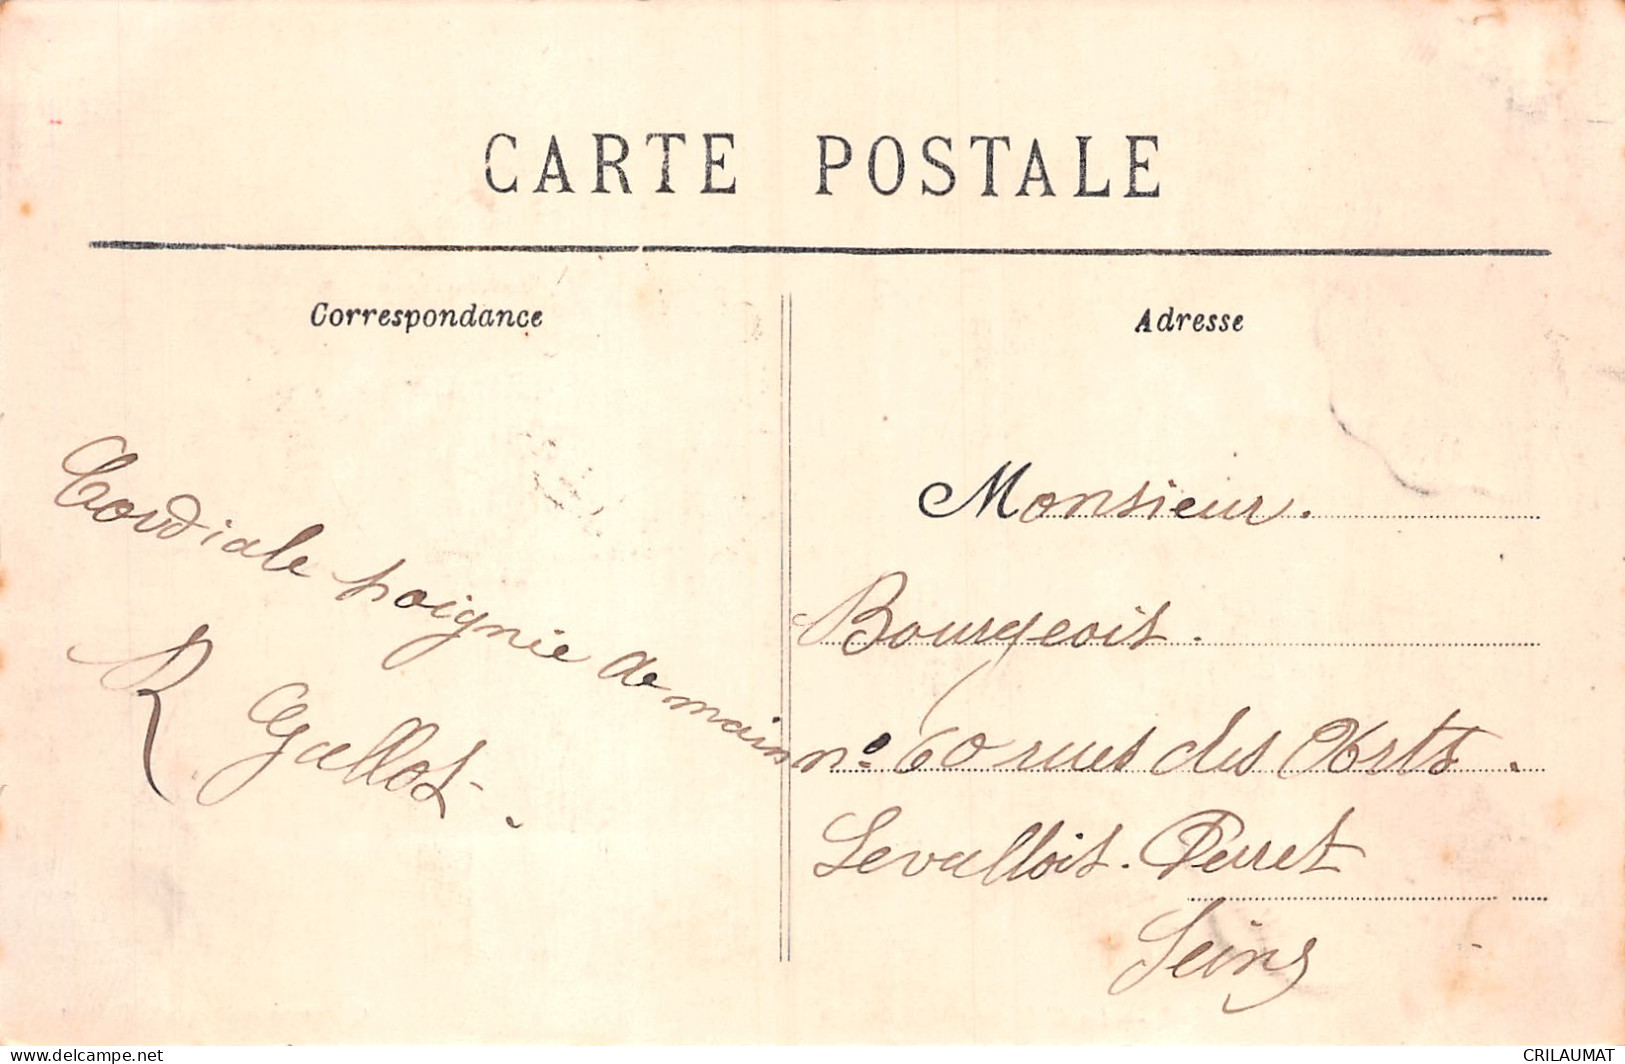 CARTE POSTALE
Correspondance
Cordiale poignie de main
R Gallot.
Adresse
Monsieur.
Bourgeois.
n° 60 rues des Arts.
Levallois. Perret
Seine
www.delcampe.net
CRILAUMAT